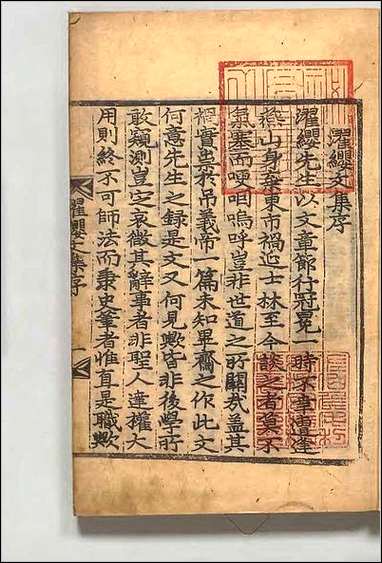 濯纓文集序
濯纓先生以文章節行冠冕一時不幸遭逢
燕山身棄東市禍延士林至今談之者莫不
氣塞而哽咽嗚呼豈非世道之所關哉盖其
禍實出於吊義帝一篇未知畢齋之作此文
何意先生之録是文又何見歟皆非後學所
敢窺測豈定哀微其辭事者非聖人達權大
用則終不可師法而秉史筆者惟直是職歟
濯纓文集序 一